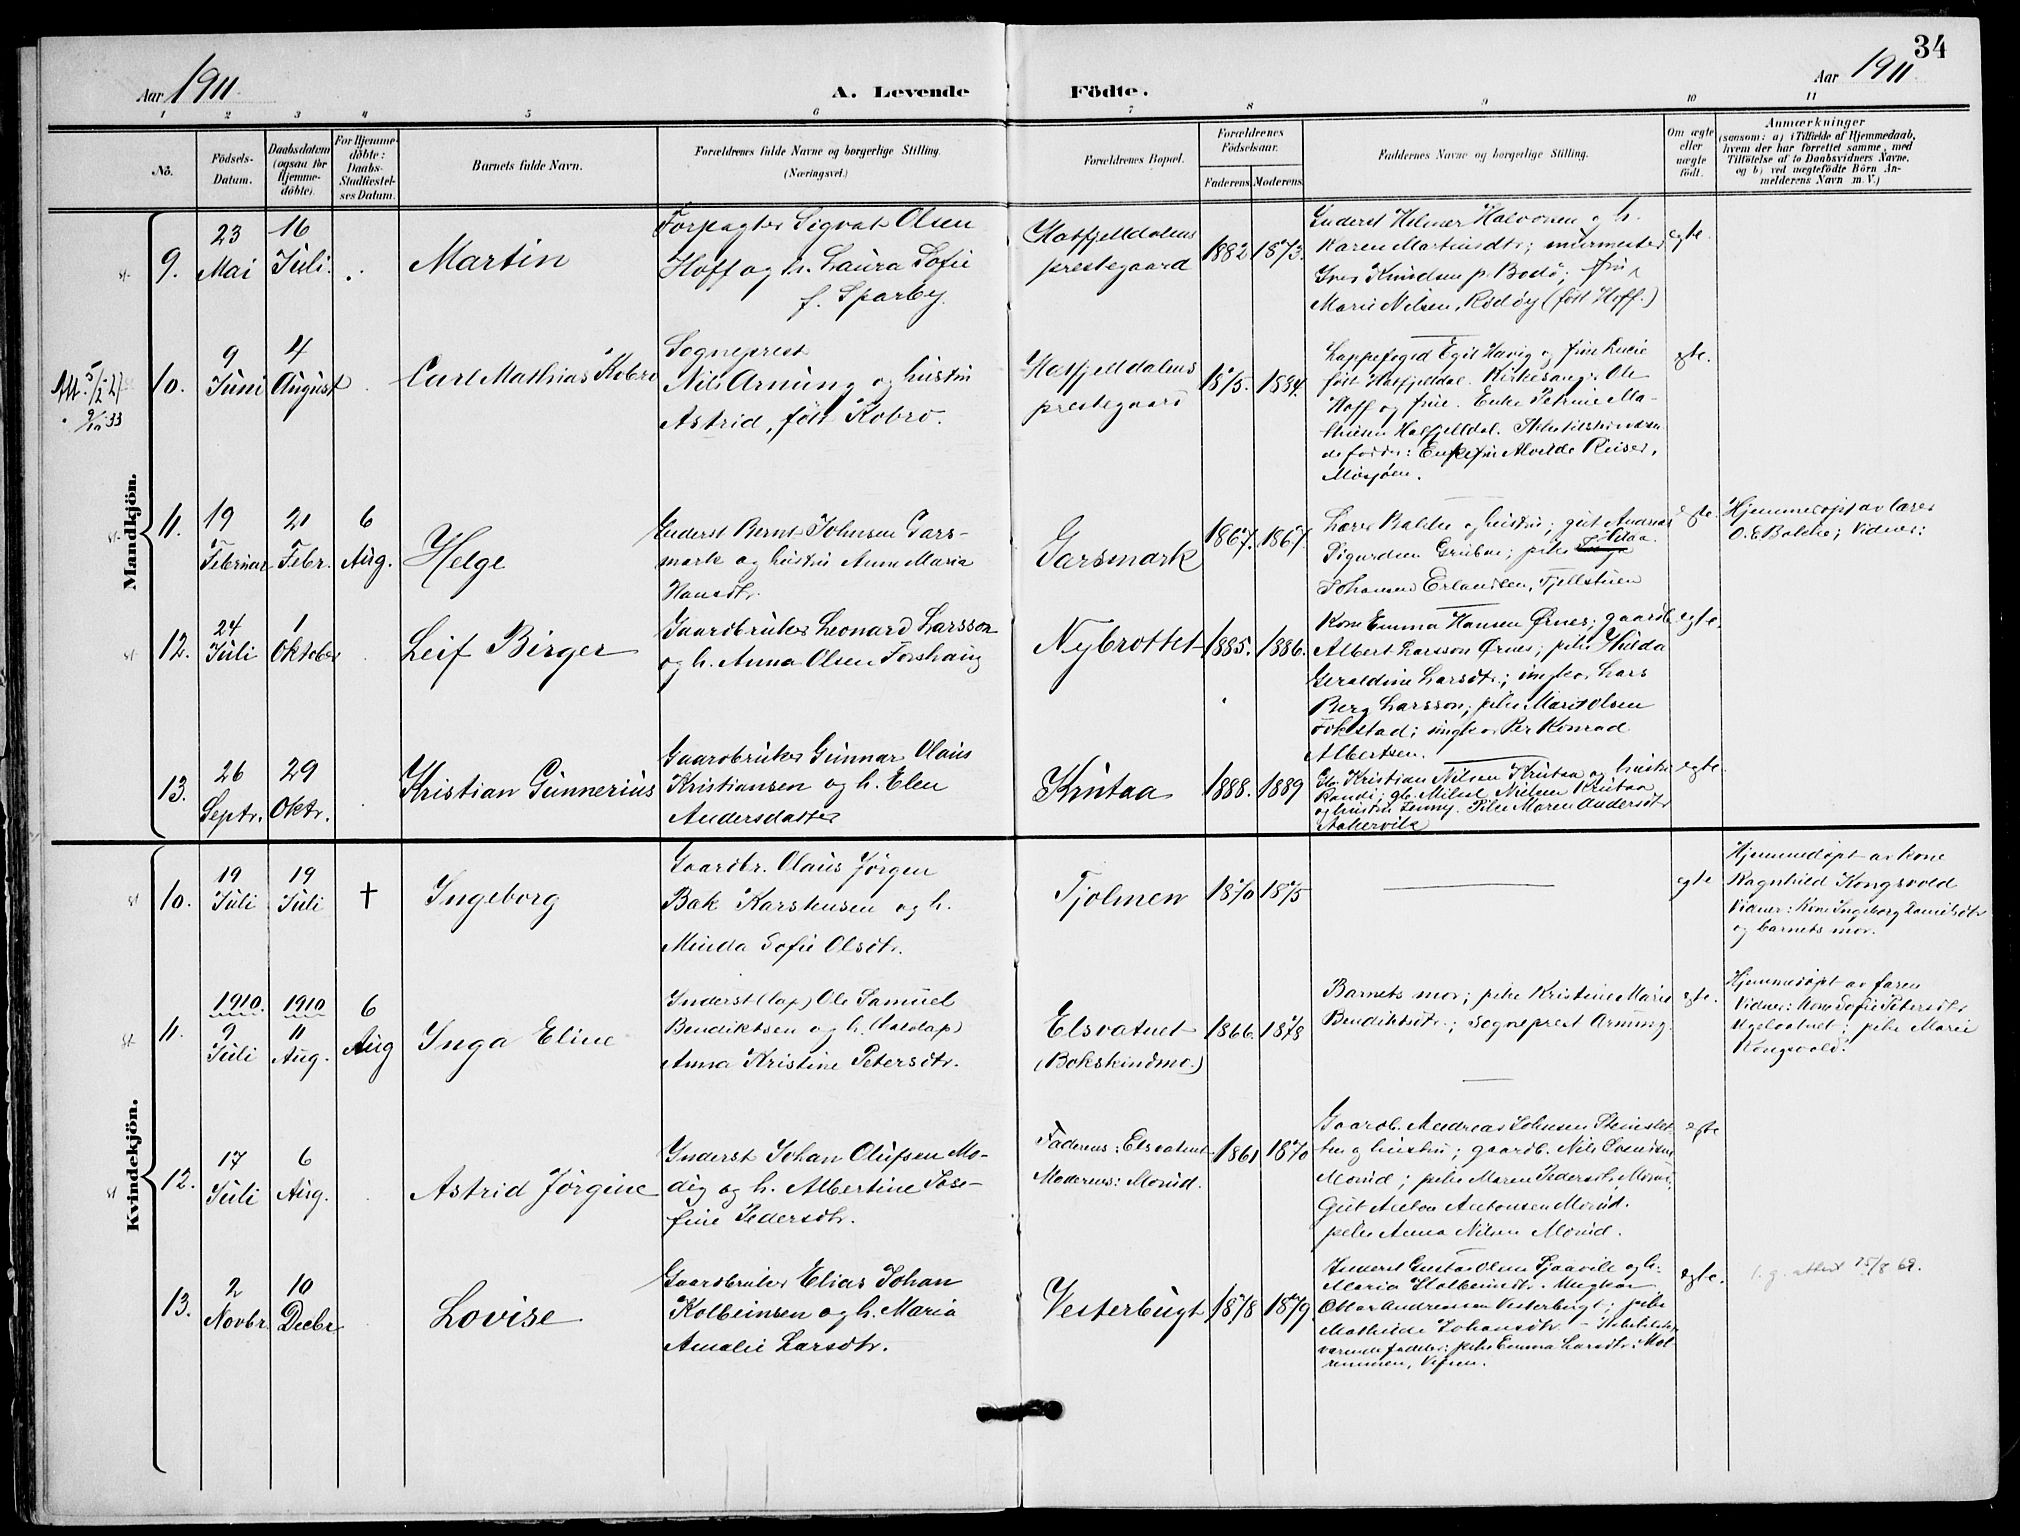 34
Aar 1911.
A. Levende Födte.
Aar 1911.
1 2 3 4 5 6 7 8 9 10 11
No.
Födsels-
Datum.
Daabsdatum
(ogsaa for
Hjemme-
döbte).
For Hjemme-
döbte:
Daabs-
Stadfæstel-
ses Datum.
Barnets fulde Navn.
Forældrenes fulde Navne og borgerlige Stilling.
(Næringsvei.)
Forældrenes Bopæl.
Forældrenes
Födselsaar.
Faderens. Moderens.
Faddernes Navne og borgerlige Stilling.
Om ægte
eller
uægte
födt.
Anmærkninger
(saasom: a) i Tilfælde af Hjemmedaab,
hvem der har forrettet samme, med
Tilföielse af to Daabsvidners Navne,
og b) ved uægtefödte Börn An-
melderens Navn m. V.)
Mandkjön.
9.
23
Mai
16
Juli.
Martin
Forpagter Sigvat Olsen
Hoff og h. Laura Sofie
f. Sparby.
Hatfjelldalens
prestegaard
1882
1873.
Inderst Helmer Halvorsen og h.
Karen Martinsdtr; murmester
Iver Knudsen p. Bodö; fru
Marie Nilsen, Rödöy (föt Hoff.)
egte.
Att. 5/12-27
9/10 33
10.
9
Juni
4
August
Carl Mathias Kobro
Sogneprest
Nils Arnung og hustru
Astrid, föt Kobro.
Hatfjelldalens
prestegaard
1875.
1884.
Lappefoged Egil Havig og frue Lucie
föt Hatfjeldal. Kirkesang. Ole
Hoff og frue. Enke Petrine Ma-
thisen Hatfjelldal. Ikke tilstedeværen-
de fadder: Enkefru Alvilde Reiser,
Mosjöen.
egte.
11.
19
Februar
21
Febr.
6
Aug.
Helge
Inderst Bernt Johnsen Gars-
mark og hustru Anne Maria
Hansdtr.
Garsmark
1867.
1867.
Lærer Bolde og hustru; gut Andreas
Sigurdsen Grubae; pike
Johansen Erlandsen, Fjellstuen
egte.
Hjemmedöpt av lærer
O. E. Bolde; Vidner:
12.
24
Juli
1
Oktober
Leif Birger
Gaardbruker Leonard Larsson
og h. Anna Olsen Forshaug
Nybrottet
1885.
1886.
Kone Emma Hansen Ørnes; gaardb.
Albert Larsson Ørnes; pike Hulda
Geraldine Larsdtr.; ungkar Lars
Berg Larsson; pike Marit Olsen
Fokstad; ungkar Per Konrad
Albertsen.
egte.
13.
26
Septr.
29
Oktr.
Kristian Gunnerius
Gaardbruker Gunnar Olaus
Kristiansen og h. Elen
Andersdatter
Krutaa
1888.
1889
Gb. Kristian Nilsen Krutaa og hustru
Randi; gb. Mikal Nielsen Krutaa
og hustru Jenny. Pike Maren Andersdtr
Aakervik
egte.
Kvindekjön.
10.
19
Juli
19
Juli
†
Ingeborg
Gaardbr. Olaus Jørgen
Bak Karstensen og h.
Minda Sofie Olsdtr.
Tjolmen
1870
1875
egte
Hjemmedöpt av kone
Ragnhild Kongsvold
Vidner: Kone Ingeborg Danielsdtr
og barnets mor.
11.
1910.
9
Juli
1910
11
Aug.
6
Aug
Inga Eline
Inderst (lap) Ole Samuel
Bendiktsen og h. (halvlap)
Anna Kristine Petersdtr.
Elsvatnet
(Bokskindmo.)
1866.
1878
Barnets mor; pike Kristine Marie
Bendiktsdtr.; Sogneprest Arnung.
egte.
Hjemmedöpt av faren
Vidner: Kone Sofie Petersdtr
Ugelvatnet; pike Marie
Kongsvold.
12.
17
Juli
6
Aug.
Astrid Jørgine
Inderst Johan Olufsen Mo-
dig og h. Albertine Jose-
fine Pedersdtr.
Faderens: Elsvatnet
Moderens: Morud.
1861
1870
Gaardb. Andreas Johnsen
og hustru; gaardb. Nils Evensen
Morud; pike Maren Pedersdtr, Morud;
Gut Anton Antonsen Morud.
pike Anna Nilsen Morud.
egte
13.
2
Novbr.
10
Decbr
Lovise
Gaardbruker Elias Johan
Kolbeinsen og h. Maria
Amalie Larsdtr.
Vesterbugt
1878
1879.
Inderst Gustav Olsen Tjaavik og h.
Maria Kolbeinsdtr. Ungkar
Ottar Andreassen Vesterbugt; pike
Mathilde Johansdtr. – Ikke tilstede-
værende fadder: pike Emma Larsdtr.
Vefsen.
egte.
l. g. attest 15/8 62.